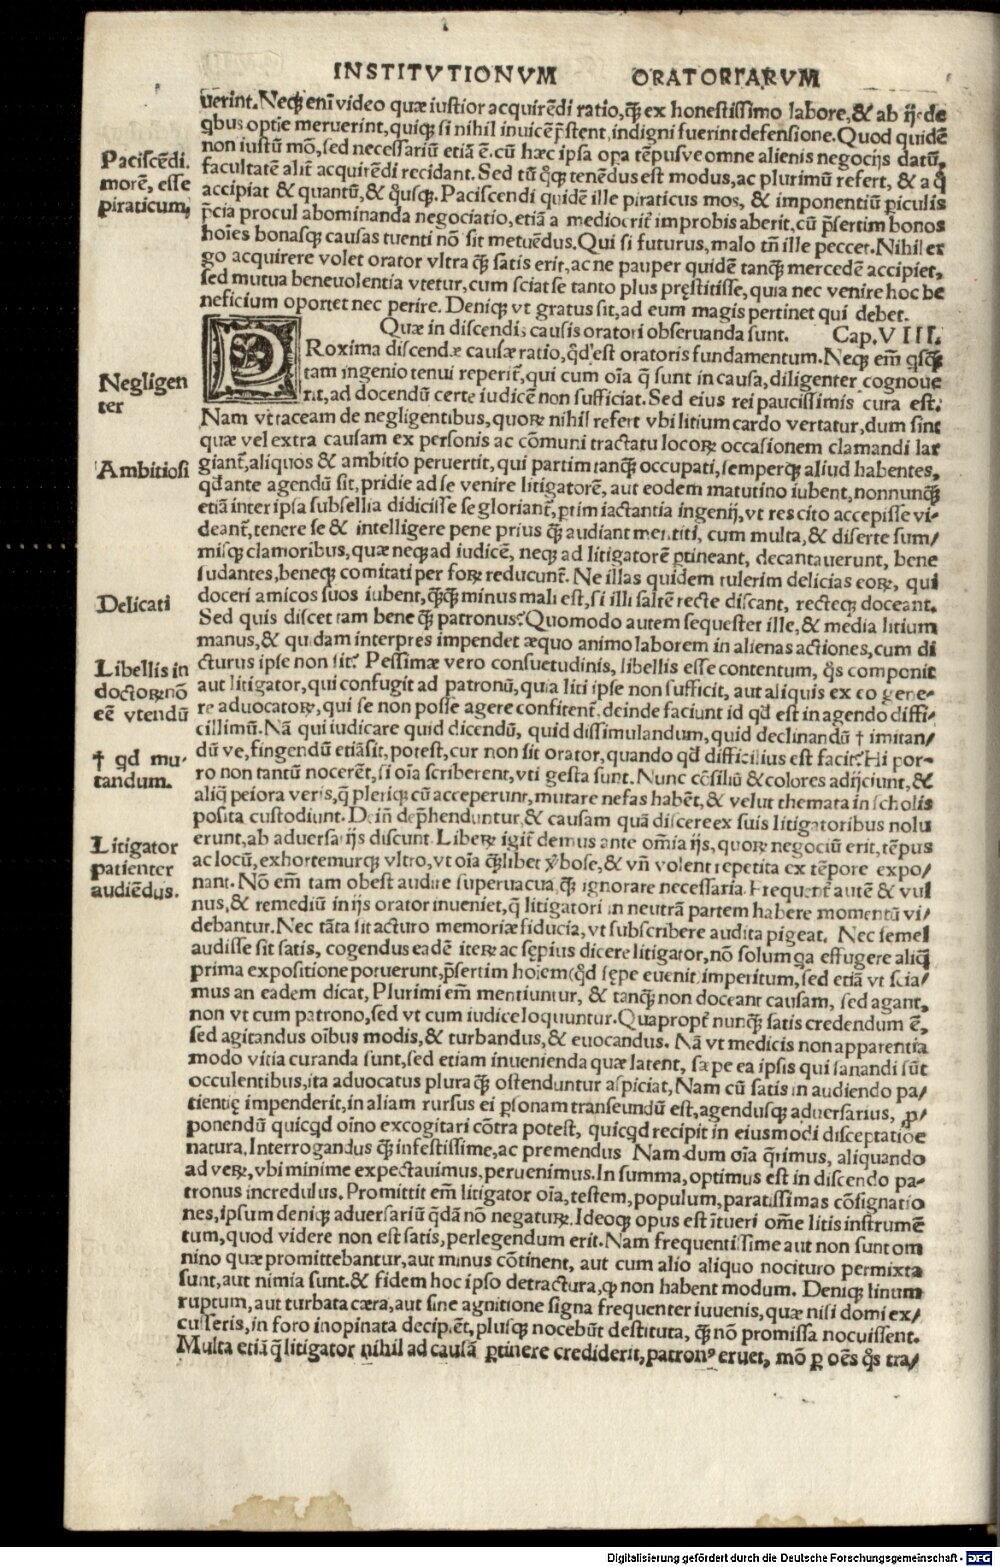 INSTITVTIONVM ORATORIARVM
uerint. Neq; eni video quæ iustior acquirẽdi ratio, q̃ ex honestissimo labore, & ab ijs de
qbus optie meruerint, quiq; si nihil inuicẽ p̃stent, indigni fuerint defensione. Quod quidẽ
non iustũ mõ, sed necessariũ etiã ẽ. cũ hæc ipsa opa tẽpusve omne alienis negocijs datũ,
Paciscẽdi
morẽ, esse
piraticum,
facultatẽ alit̃ acquirẽdi recidant. Sed tũ q̃q; tenẽdus est modus, ac plurimũ refert, & a q̃
accipiat & quantũ, & q̃usq;. Paciscendi quidẽ ille piraticus mos, & imponentiũ piculis
p̃cia procul abominanda negociatio, etiã a mediocrit̃ improbis aberit, cũ p̃sertim bonos
hoĩes bonasq; causas tuenti nõ sit metuẽdus. Qui si futurus, malo tñ ille peccet. Nihil er
go acquirere volet orator vltra q̃ satis erit, ac ne pauper quidẽ tanq̃ mercedẽ accipiet,
sed mutua beneuolentia vtetur, cum sciat se tanto plus pręstitisse, quia nec venire hoc be
neficium oportet nec perire. Deniq; vt gratus sit, ad eum magis pertinet qui debet.
Quæ in discendis causis oratori obseruanda sunt. Cap. VIII.
PRoxima discendæ causæ ratio, q̃d est oratoris fundamentum. Neq; em̃ qsq̃
tam ingenio tenui reperit̃, qui cum oĩa q̃ sunt in causa, diligenter cognoue
Negligen
ter
rit, ad docendũ certe iudicẽ non sufficiat. Sed eius rei paucissimis cura est.
Nam vt taceam de negligentibus, quoꝝ nihil refert vbi litium cardo vertatur, dum sint
quæ vel extra causam ex personis ac cõmuni tractatu locoꝝ occasionem clamandi lar
Ambitiosi
giant̃, aliquos & ambitio peruertit, qui partim tanq̃ occupati, semperq; aliud habentes,
qd̃ ante agendũ sit, pridie ad se venire litigatorẽ, aut eodem matutino iubent, nonnunq̃
etiã inter ipsa subsellia didicisse se gloriant̃, ptim iactantia ingenij, vt res cito accepisse vi-
deant̃, tenere se & intelligere pene prius q̃ audiant mentiti, cum multa, & diserte sum/
misq; clamoribus, quæ neq; ad iudicẽ, neq; ad litigatorẽ ptineant, decantauerunt, bene
sudantes, beneq; comitati per foꝝ reducunt̃. Ne illas quidem tulerim delicias eoꝝ, qui
Delicati
doceri amicos suos iubent, q̃q̃ minus mali est, si illi saltẽ recte discant, recteq; doceant.
Sed quis discet tam bene q̃ patronus? Quomodo autem sequester ille, & media litium
manus, & quidam interpres impendet æquo animo laborem in alienas actiones, cum di
Libellis in
doctoꝝ nõ
eẽ vtendũ
cturus ipse non sit? Pessimæ vero consuetudinis, libellis esse contentum, q̃s componit
aut litigator, qui confugit ad patronũ, quia liti ipse non sufficit, aut aliquis ex eo gene-
re aduocatoꝝ, qui se non posse agere confitent̃, deinde faciunt id qd̃ est in agendo diffi-
cillimũ. Nã qui iudicare quid dicendũ, quid dissimulandum, quid declinandũ † imitan/
† qd mu-
tandum.
dũ ve, fingendũ etiã sit, potest, cur non sit orator, quando qd̃ difficilius est facit? Hi por-
ro non tantũ nocerẽt, si oĩa scriberent, vti gesta sunt. Nunc cõsiliũ & colores adijciunt, &
aliq̃ peiora veris, q̃ pleriq; cũ acceperunt, mutare nefas habẽt, & velut themata in scholis
posita custodiunt. Dein̄ dep̃henduntur, & causam quã discere ex suis litigatoribus nolu
Litigator
patienter
audiẽdus.
erunt, ab aduersarijs discunt. Libeꝝ igit̃ demus ante om̃ia ijs, quoꝝ negociũ erit, tẽpus
ac locũ, exhortemurq; vltro, vt oĩa q̃libet v̾bose, & vñ volent repetita ex tẽpore expo/
nant. Nõ em̃ tam obest audire superuacua, q̃ ignorare necessaria. Frequent̃ autẽ & vul
nus, & remediũ in ijs orator inueniet, q̃ litigatori in neutrã partem habere momentũ vi/
debantur. Nec tãta sit acturo memoriæ fiducia, vt subscribere audita pigeat. Nec semel
audisse sit satis, cogendus eadẽ iteꝝ ac sępius dicere litigator, nõ solum qa effugere aliq̃
prima expositione potuerunt, p̃sertim hoĩem (q̃d sępe euenit) imperitum, sed etiã vt scia/
mus an eadem dicat, Plurimi em̃ mentiuntur, & tanq̃ non doceant causam, sed agant,
non vt cum patrono, sed vt cum iudice loquuntur. Quapropt̃ nunq̃ satis credendum ẽ,
sed agitandus oĩbus modis, & turbandus, & euocandus. Nã vt medicis non apparentia
modo vitia curanda sunt, sed etiam inuenienda quæ latent, sæpe ea ipsis qui sanandi sũt
occulentibus, ita aduocatus plura q̃ ostenduntur aspiciat, Nam cũ satis in audiendo pa/
tientię impenderit, in aliam rursus ei psonam transeundũ est, agendusq; aduersarius, p/
ponendũ quicqd oĩno excogitari cõtra potest, quicqd recipit in eiusmodi disceptatiõe
natura. Interrogandus q̃ infestissime, ac premendus Nam dum oĩa q̃rimus, aliquando
ad veꝝ, vbi minime expectauimus, peruenimus. In summa, optimus est in discendo pa-
tronus incredulus. Promittit em̃ litigator oĩa, testem, populum, paratissimas cõsignatio
nes, ipsum deniq; aduersariũ q̃dã nõ negatuꝝ. Ideoq; opus est ĩtueri om̃e litis instrumẽ
tum, quod videre non est satis, perlegendum erit. Nam frequentissime aut non sunt om
nino quæ promittebantur, aut minus cõtinent, aut cum alio aliquo nocituro permixta
sunt, aut nimia sunt. & fidem hoc ipso detractura, ꝙ non habent modum. Deniq; linum
ruptum, aut turbata cæra, aut sine agnitione signa frequenter iuuenis, quæ nisi domi ex/
cusseris, in foro inopinata decipiẽt, plusq; nocebũt destituta, q̃ nõ promissa nocuissent.
Multa etiã q̃ litigator nihil ad causã ptinere crediderit, patronꝰ eruet, mõ p oẽs q̃s tra/
Digitalisierung gefördert durch die Deutsche Forschungsgemeinschaft - DFG